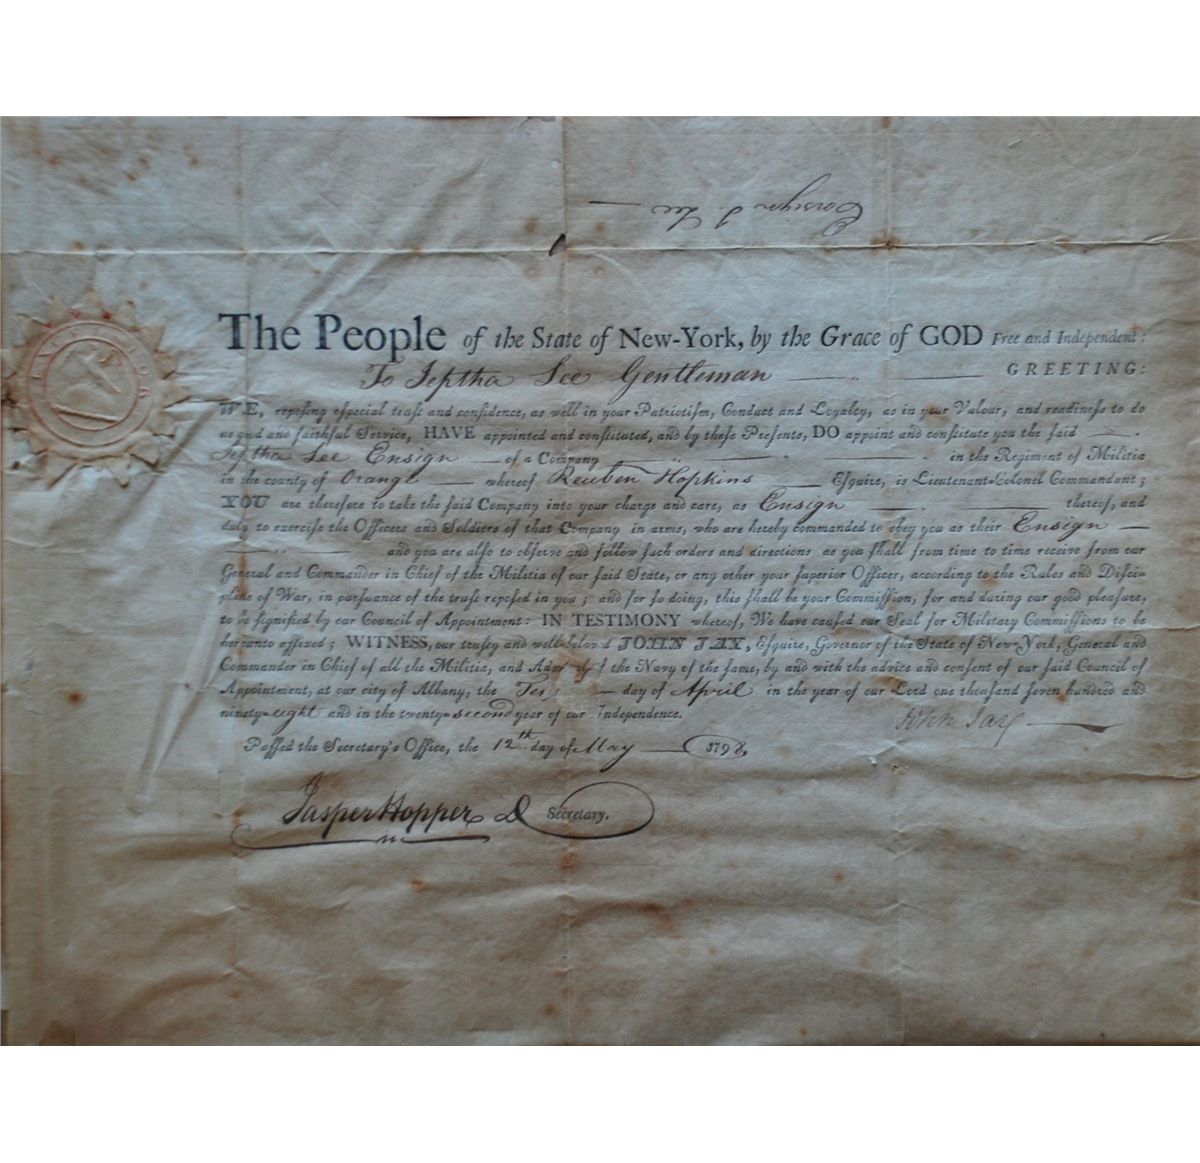 Ensign J. Lee
The People of the State of New-York, by the Grace of GOD Free and Independent:
To Jeptha Lee Gentleman GREETING:
WE, reposing eſpecial truſt and confidence, as well in your Patriotiſm, Conduct and Loyalty, as in your Valour, and readineſs to do
us good and faithful Service, HAVE appointed and conſtituted, and by theſe Preſents, DO appoint and conſtitute you the ſaid
Jeptha Lee Ensign of a Company in the Regiment of Militia
in the county of Orange whereof Reuben Hopkins Eſquire, is Lieutenant-Colonel Commandant;
YOU are therefore to take the ſaid Company into your charge and care, as Ensign thereof, and
duly to exerciſe the Officers and Soldiers of that Company in arms, who are hereby commanded to obey you as their Ensign
and you are alſo to obſerve and follow ſuch orders and directions as you ſhall from time to time receive from our
General and Commander in Chief of the Militia of our ſaid State, or any other your ſuperior Officer, according to the Rules and Diſci-
pline of War, in purſuance of the truſt repoſed in you; and for ſo doing, this ſhall be your Commiſſion, for and during our good pleaſure,
to be ſignified by our Council of Appointment: IN TESTIMONY whereof, We have cauſed our Seal for Military Commiſſions to be
hereunto affixed; WITNESS, our truſty and well-beloved JOHN JAY, Eſquire, Governor of the State of New-York, General and
Commander in Chief of all the Militia, and Admiral of the Navy of the ſame, by and with the advice and conſent of our ſaid Council of
Appointment, at our city of Albany, the day of April in the year of our Lord one thouſand ſeven hundred and
ninety-eight and in the twenty-second year of our Independence.
John Jay
Paſſed the Secretary's Office, the 12th day of May 1798,
Jasper Hopper D Secretary.